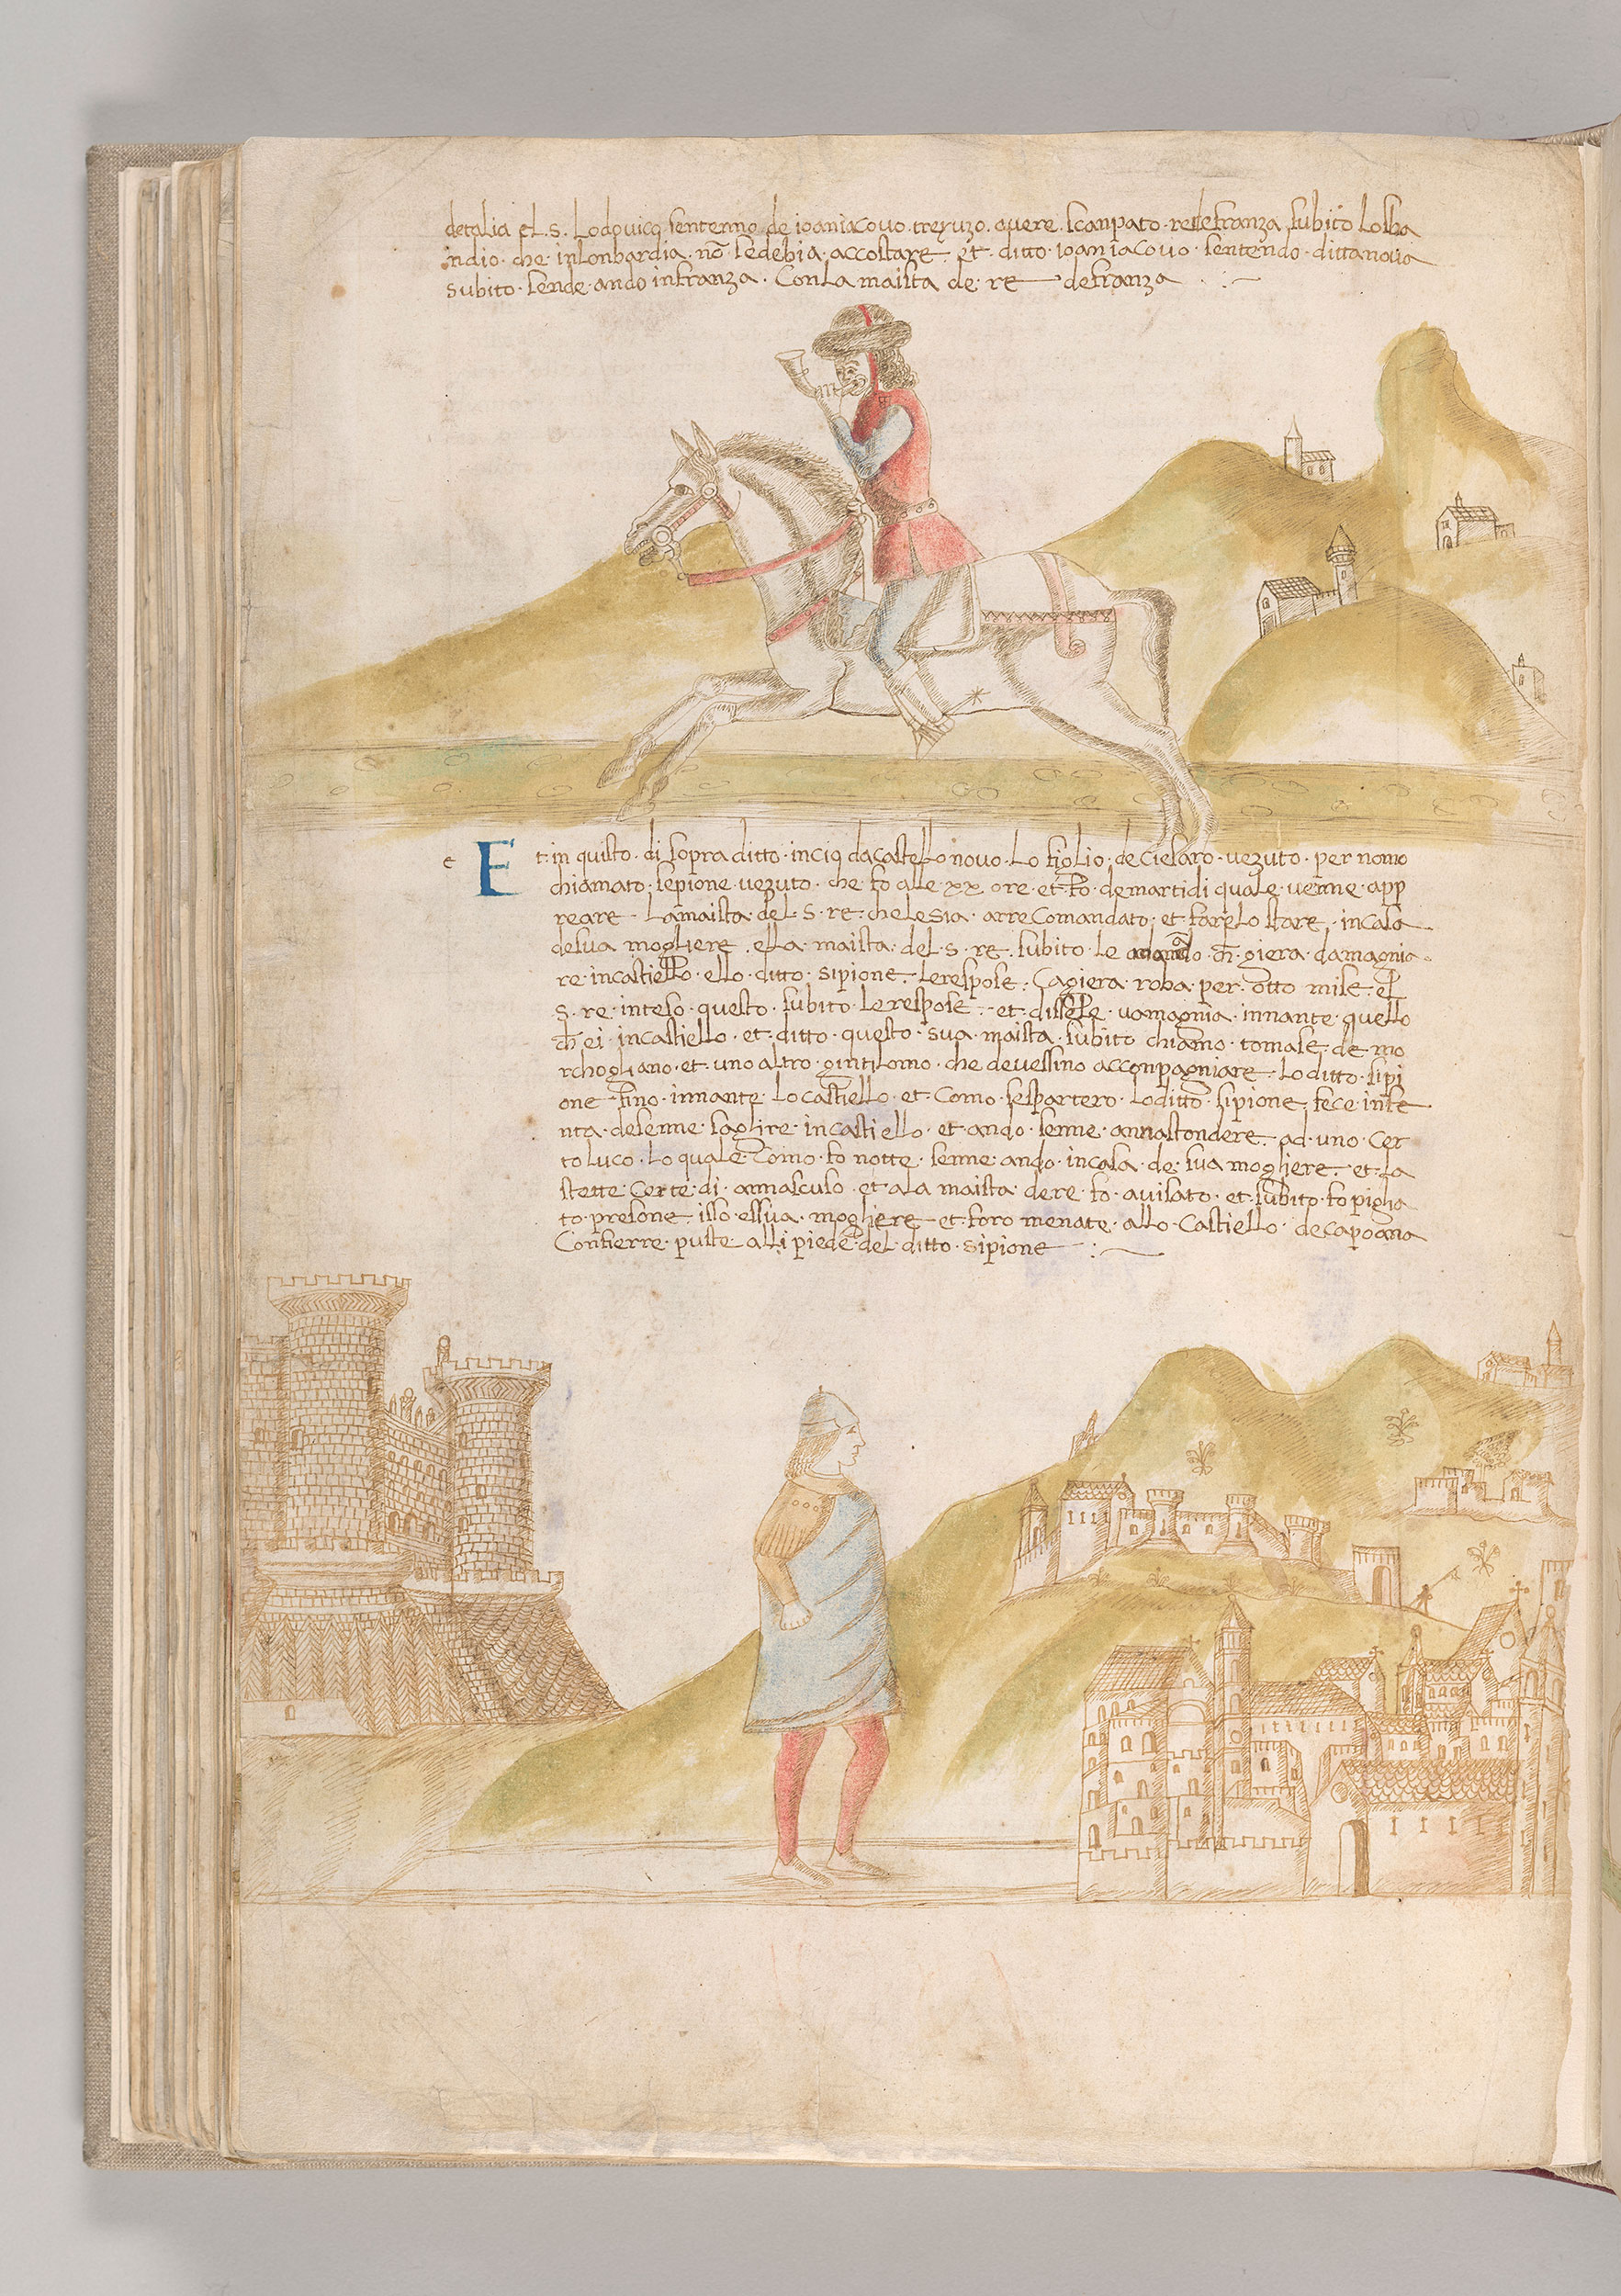 detalia el .s. Lodovico sentenno de ioaniacovo trevuzo avere scanpato re de franza subito lo sba
ndio che in lonbardia nō se debia accostare et ditto ioaniacovo sentendo ditta nova
subito sende ando in franza Con la maista de re de franza
e Et in quisto di sopra ditto in ciō da castello novo lo figlio de Ciesaro vezuto per nomo
chiamato sepione vezuto che fo alle xx ore et fo de martidi quale venne app
reare la maista del s re che le sia arrecomandato et farelo stare in casa
de sua mogliere ella maista del s re subito le adomādo che giera da magnia
re in castiello ello ditto sipione le respose Cagiera roba per otto mise el
s re inteso questo subito le respose et disse le va magnia innante quello
ch ei in castiello et ditto questo sua maista subito chiamo tomase de mo
rchogliano et uno altro gintilomo che devessino acconpagniare lo ditto sipi
one fino innante lo castiello et Como se spartero lo ditto sipione fece infe
nta desenne saglire in castiello et ando senne annascondere ad uno Cer
to luco lo quale Como fo notte senne ando in casa de sua mogliere et la
stette Certe di annasculo et a la maista de re fo avisato et subito fo piglia
to presone isso essua mogliere et foro menate allo Castiello de capoana
Con fierre puste alli piede del ditto sipione